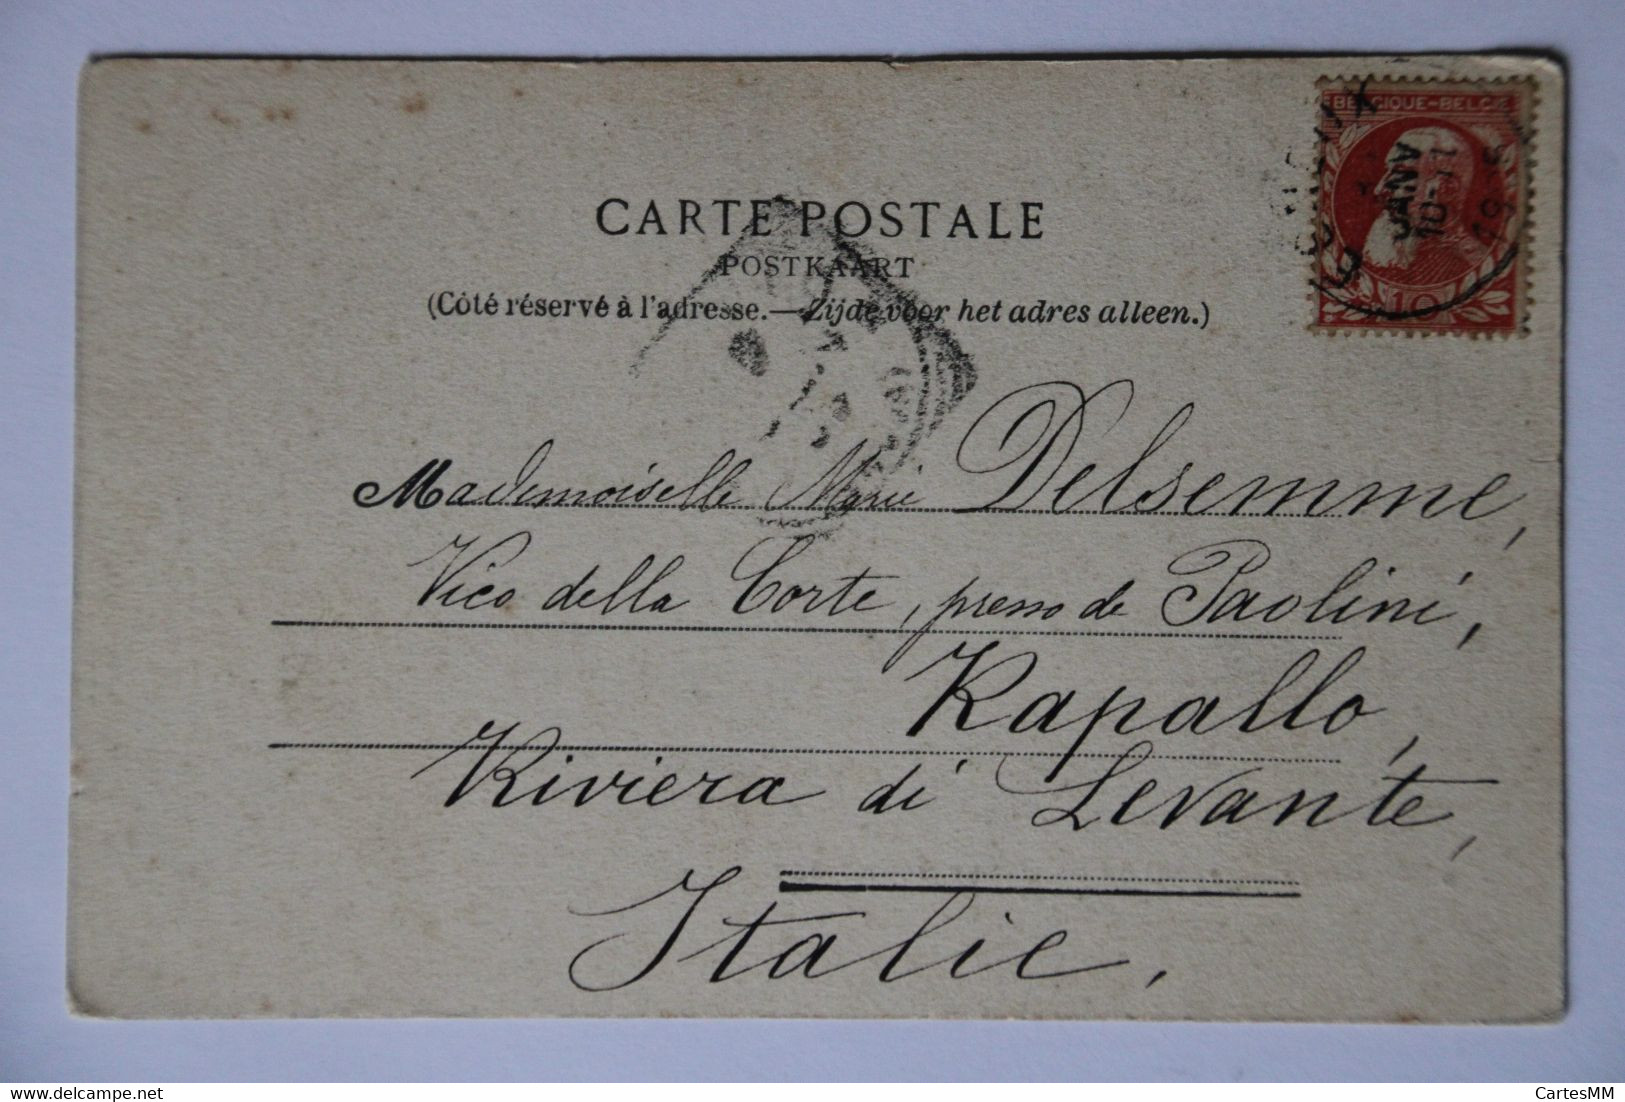 BELGIQUE-BELGIE
10
JANV
10-11
CARTE POSTALE
POSTKAART
(Côté réservé à l'adresse.—Zijde voor het adres alleen.)
Mademoiselle Marie Delsemme,
Vico della Corte, presso de Paolini,
Rapallo,
Riviera di Levante,
Italie.
delcampe.net
CartesMM